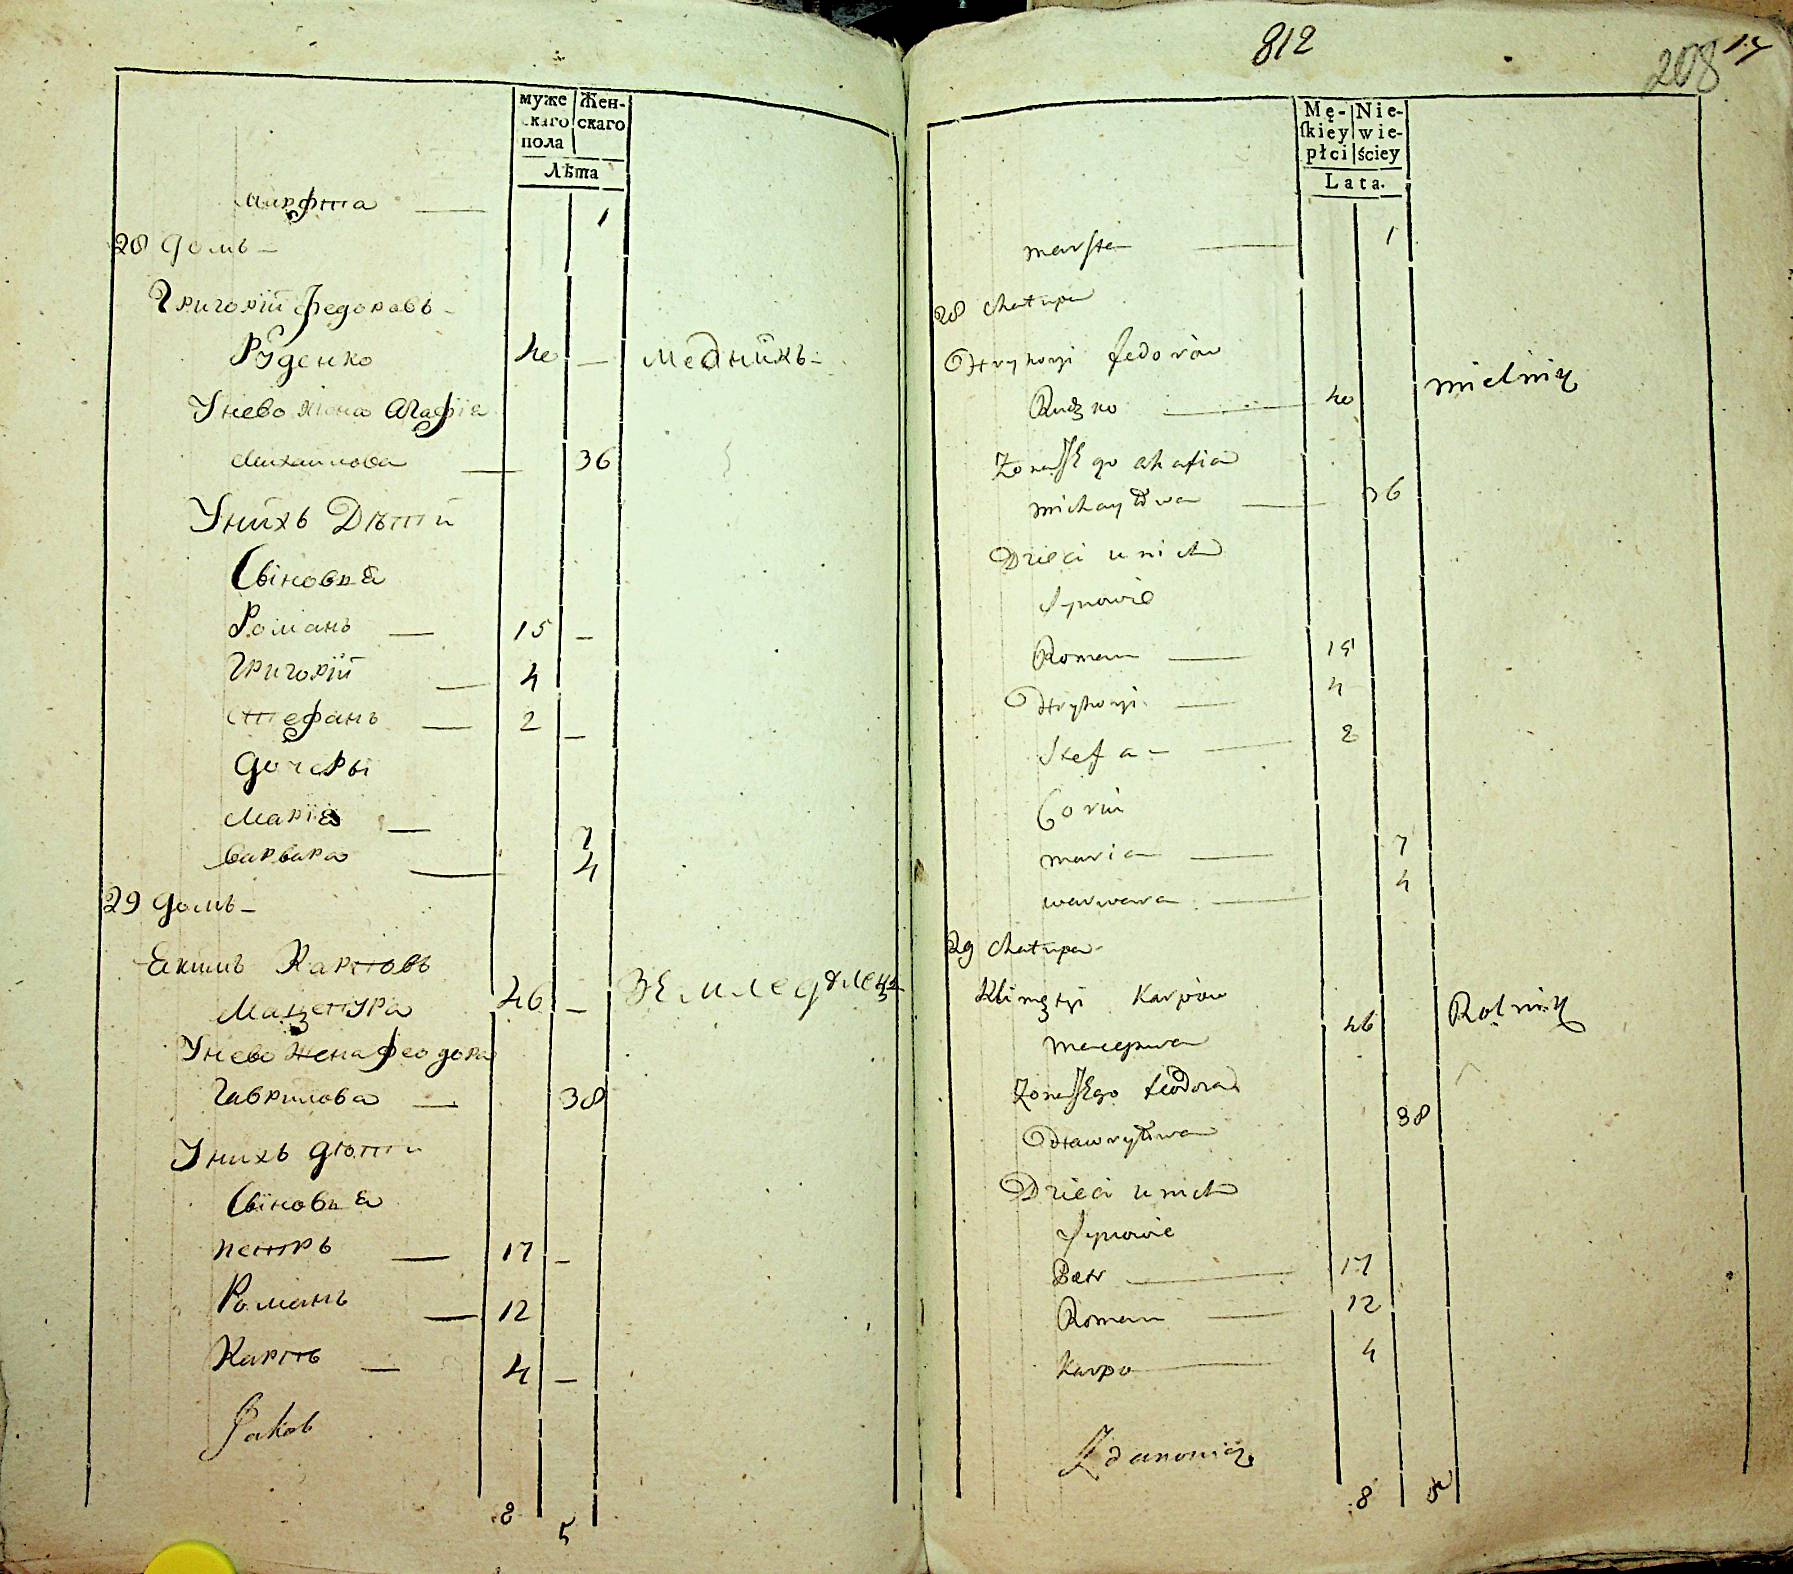 муже
скаго
пола
Жен-
скаго
Лѣта
Марфта — 1
28 домъ —
Григорій Федоровъ
Руденко 40 — Медникъ —
Унево жена Агафіа
Михаилова — 36
Унихъ Дѣти
Сыновья
Романъ — 15 —
Григорій — 4
Стефанъ — 2 —
дочеры
Маріа — 7
Варвара — 4
29 домъ —
Карповъ
Мацепура 46 — Земледѣлецъ
Унево жена Феодора
Гаврилова — 38
Унихъ дѣти
Сыновья
Петръ — 17 —
Романъ — 12
Карпъ — 4 —
Jakob
8 5
812
208
Mę-
skiey
płci
Nie-
wie-
ściey
Lata.
marfta — 1
28 chałupa
Hryhoryi fedorów
Rudzko — 40 mielnik
Zona Jego ahafia
michayłowa — 36
Dzieci u nich
Synowie
Roman — 15
Hryhoryi — 4
Stefan — 2
Corki
maria — 7
warwara — 4
29 chałupa
Karpów
macepura 46 Rolnik
Zona Jego teodora
Hawryłowa 38
Dzieci u nich
Synowie
Petr — 17
Roman — 12
Karpo — 4
Zdanowicz
8 5